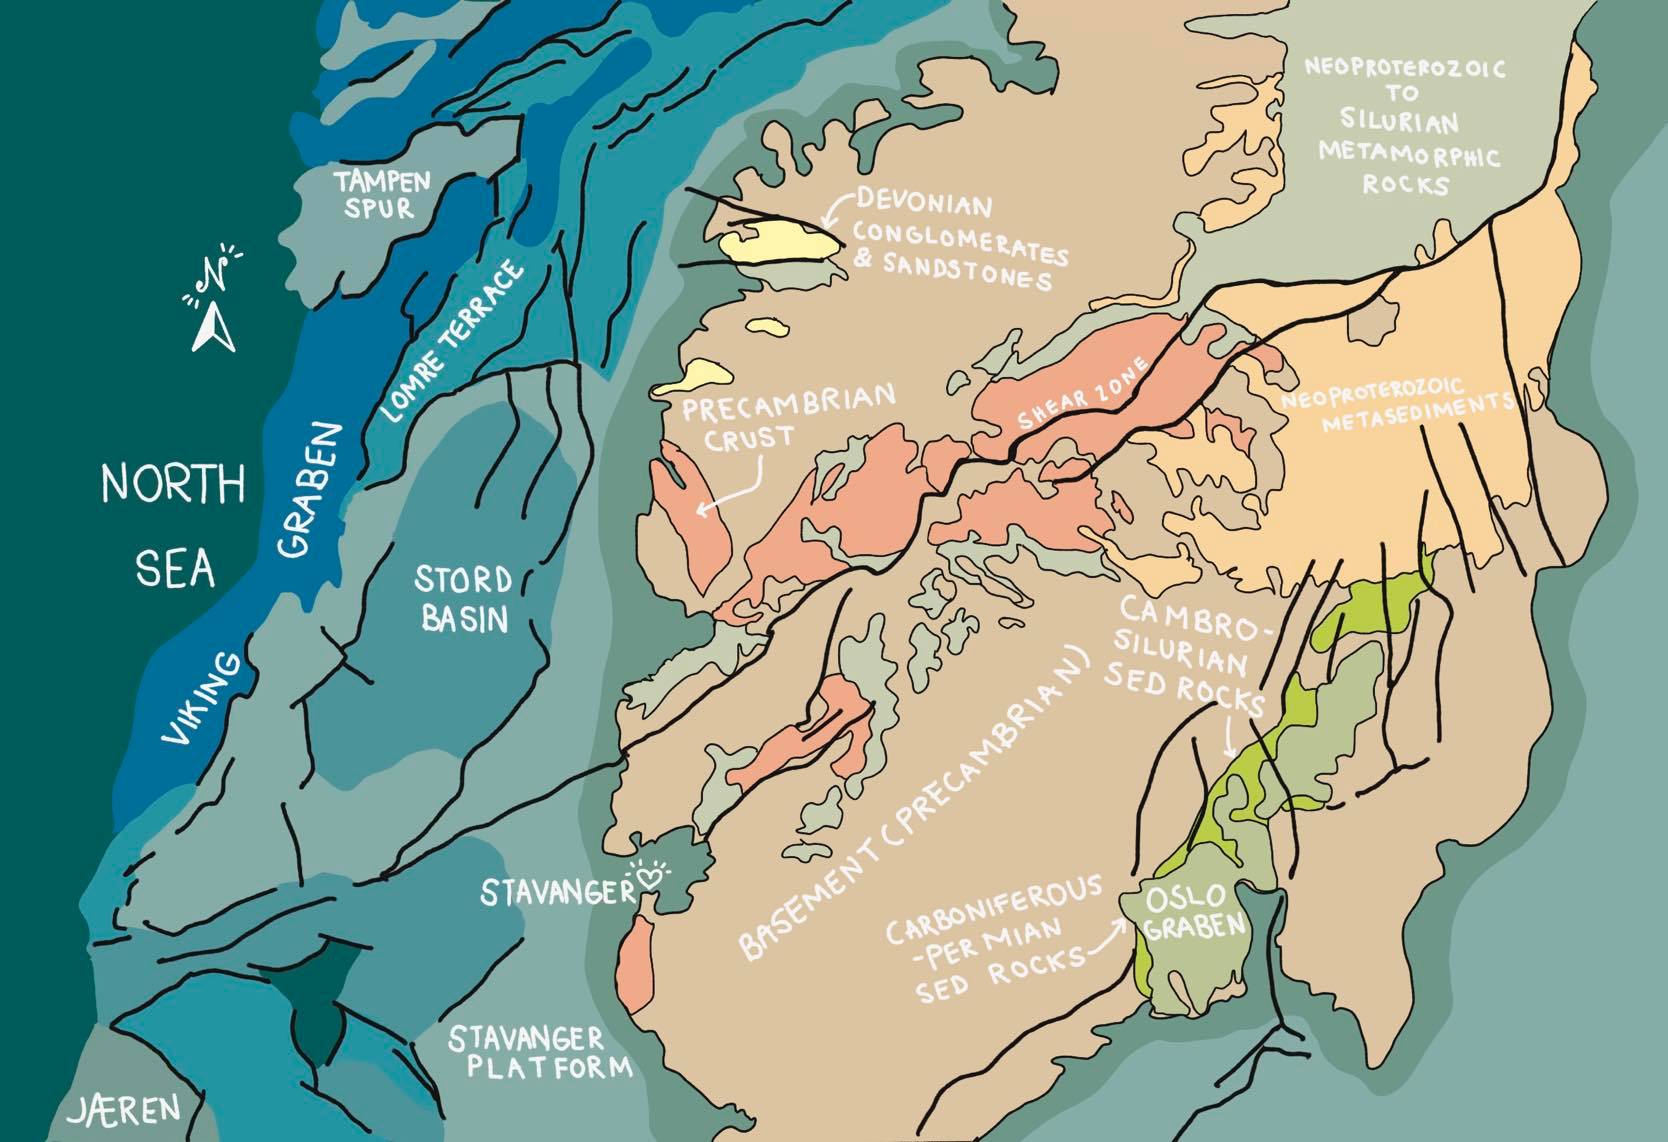 NEOPROTEROZOIC
TO
SILURIAN
METAMORPHIC
ROCKS
TAMPEN
SPUR
DEVONIAN
CONGLOMERATES
& SANDSTONES
N
LOMRE TERRACE
SHEAR ZONE
NEOPROTEROZOIC
METASEDIMENTS
PRECAMBRIAN
CRUST
NORTH
SEA
VIKING GRABEN
STORD
BASIN
CAMBRO-
SILURIAN
SED ROCKS
BASEMENT (PRECAMBRIAN)
STAVANGER
CARBONIFEROUS
-PERMIAN
SED ROCKS
OSLO
GRABEN
STAVANGER
PLATFORM
JÆREN